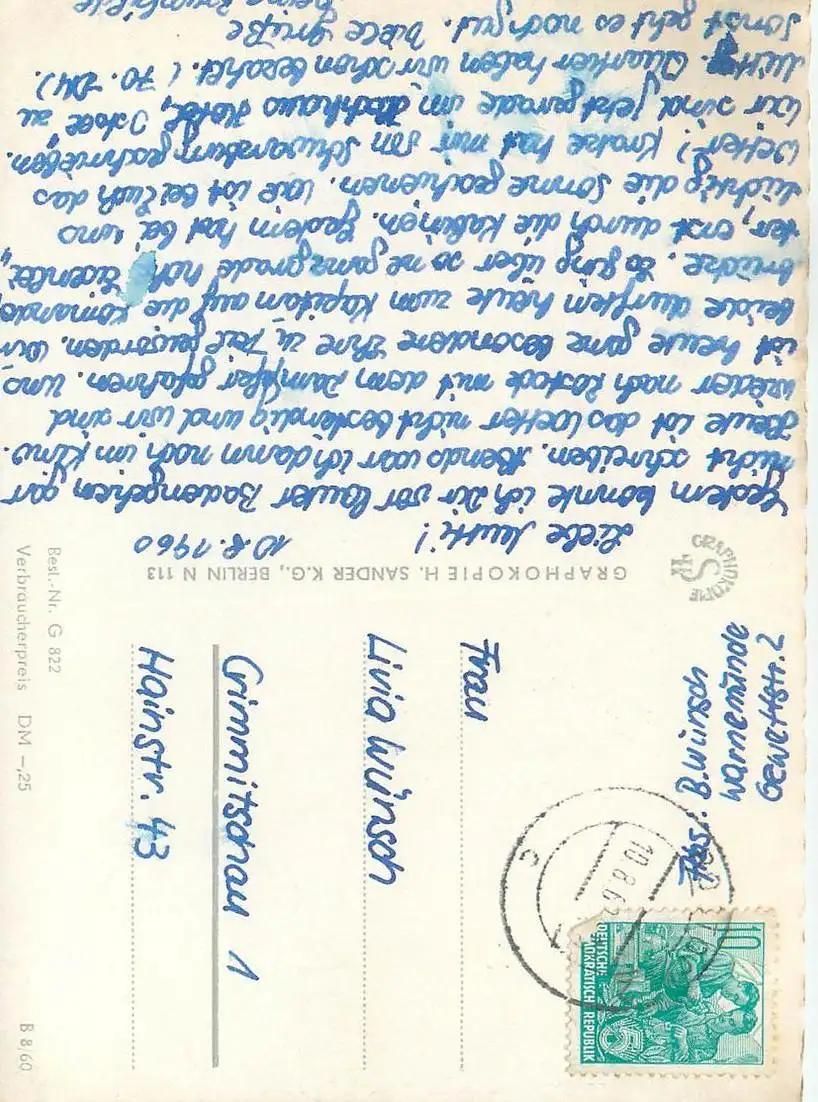 Liebe Mutti!
10.8.1960
Gestern konnte ich Dir vor lauter Badengehen gar
nicht schreiben. Abends war ich dann noch im Kino.
Heute ist das Wetter nicht bestendig und wir sind
wieder nach Rostock mit dem Dampfer gefahren. Uns
ist heute ganz besondere Ehre zu Teil geworden. Wir
beide durften heute zum Kapitän auf die Komando,
brücke. Es ging über so ne ganz grade hoh
ter, erst durch die Kabinen. Gestern hat bei uns
tüchtig die Sonne geschienen. Wie ist bei Euch das
Wetter? Krake hat mir schon geschrieben.
Wir sind jetzt gerade im Kurhaus Hotel,
Mitt. Quartier haben wir schon bezahlt. (70.- DM).
Sonst geht es noch gut. Viele Grüße
Deine
GRAPHOKOPIE H. SANDER K.G., BERLIN N 113
GRAPHOKOPIE
HS
Abs.: B. Wünsch
Warnemünde
Gewettstr. 2
10
DEUTSCHE
DEMOKRATISCHE REPUBLIK
10.8.60
Frau
Livia Wünsch
Crimmitschau 1
Hainstr. 43
Best.-Nr. G 822
Verbraucherpreis DM -,25
B 8/60